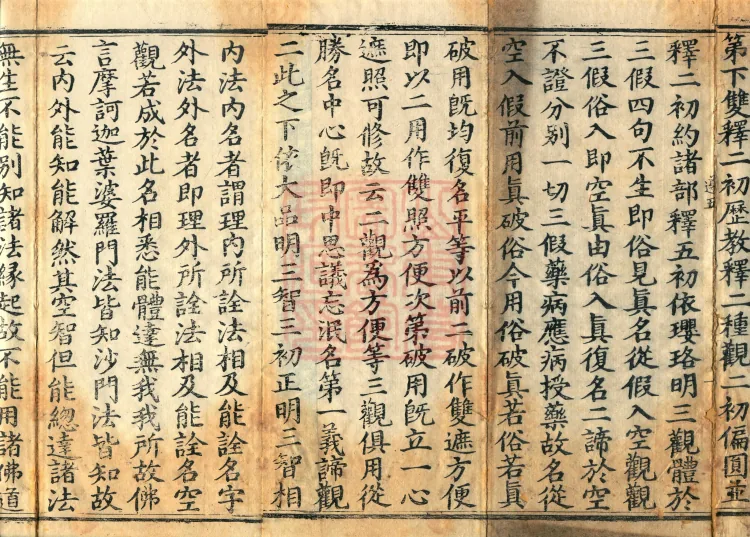 第下雙釋二初歷教釋二種觀二初偏圓並
釋二初約諸部釋五初依瓔珞明三觀體於
三假四句不生即俗見真名從假入空觀觀
三假俗入即空真由俗入真復名二諦於空
不證分別一切三假藥病應病授藥故名從
空入假前用真破俗今用俗破真若俗若真
破用旣均復名平等以前二破作雙遮方便
即以二用作雙照方便次第破用旣立一心
遮照可修故云二觀為方便等三觀俱用從
勝名中心旣即中思議忘泯名第一義諦觀
二此之下依大品明三智三初正明三智相
內法內名者謂理內所詮法相及能詮名字
外法外名者即理外所詮法相及能詮名空
觀若成於此名相悉能體達無我我所故佛
言摩訶迦葉婆羅門法皆知沙門法皆知故
云內外能知能解然其空智但能緫達諸法
無生不能別知諸法緣起故不能用諸佛道